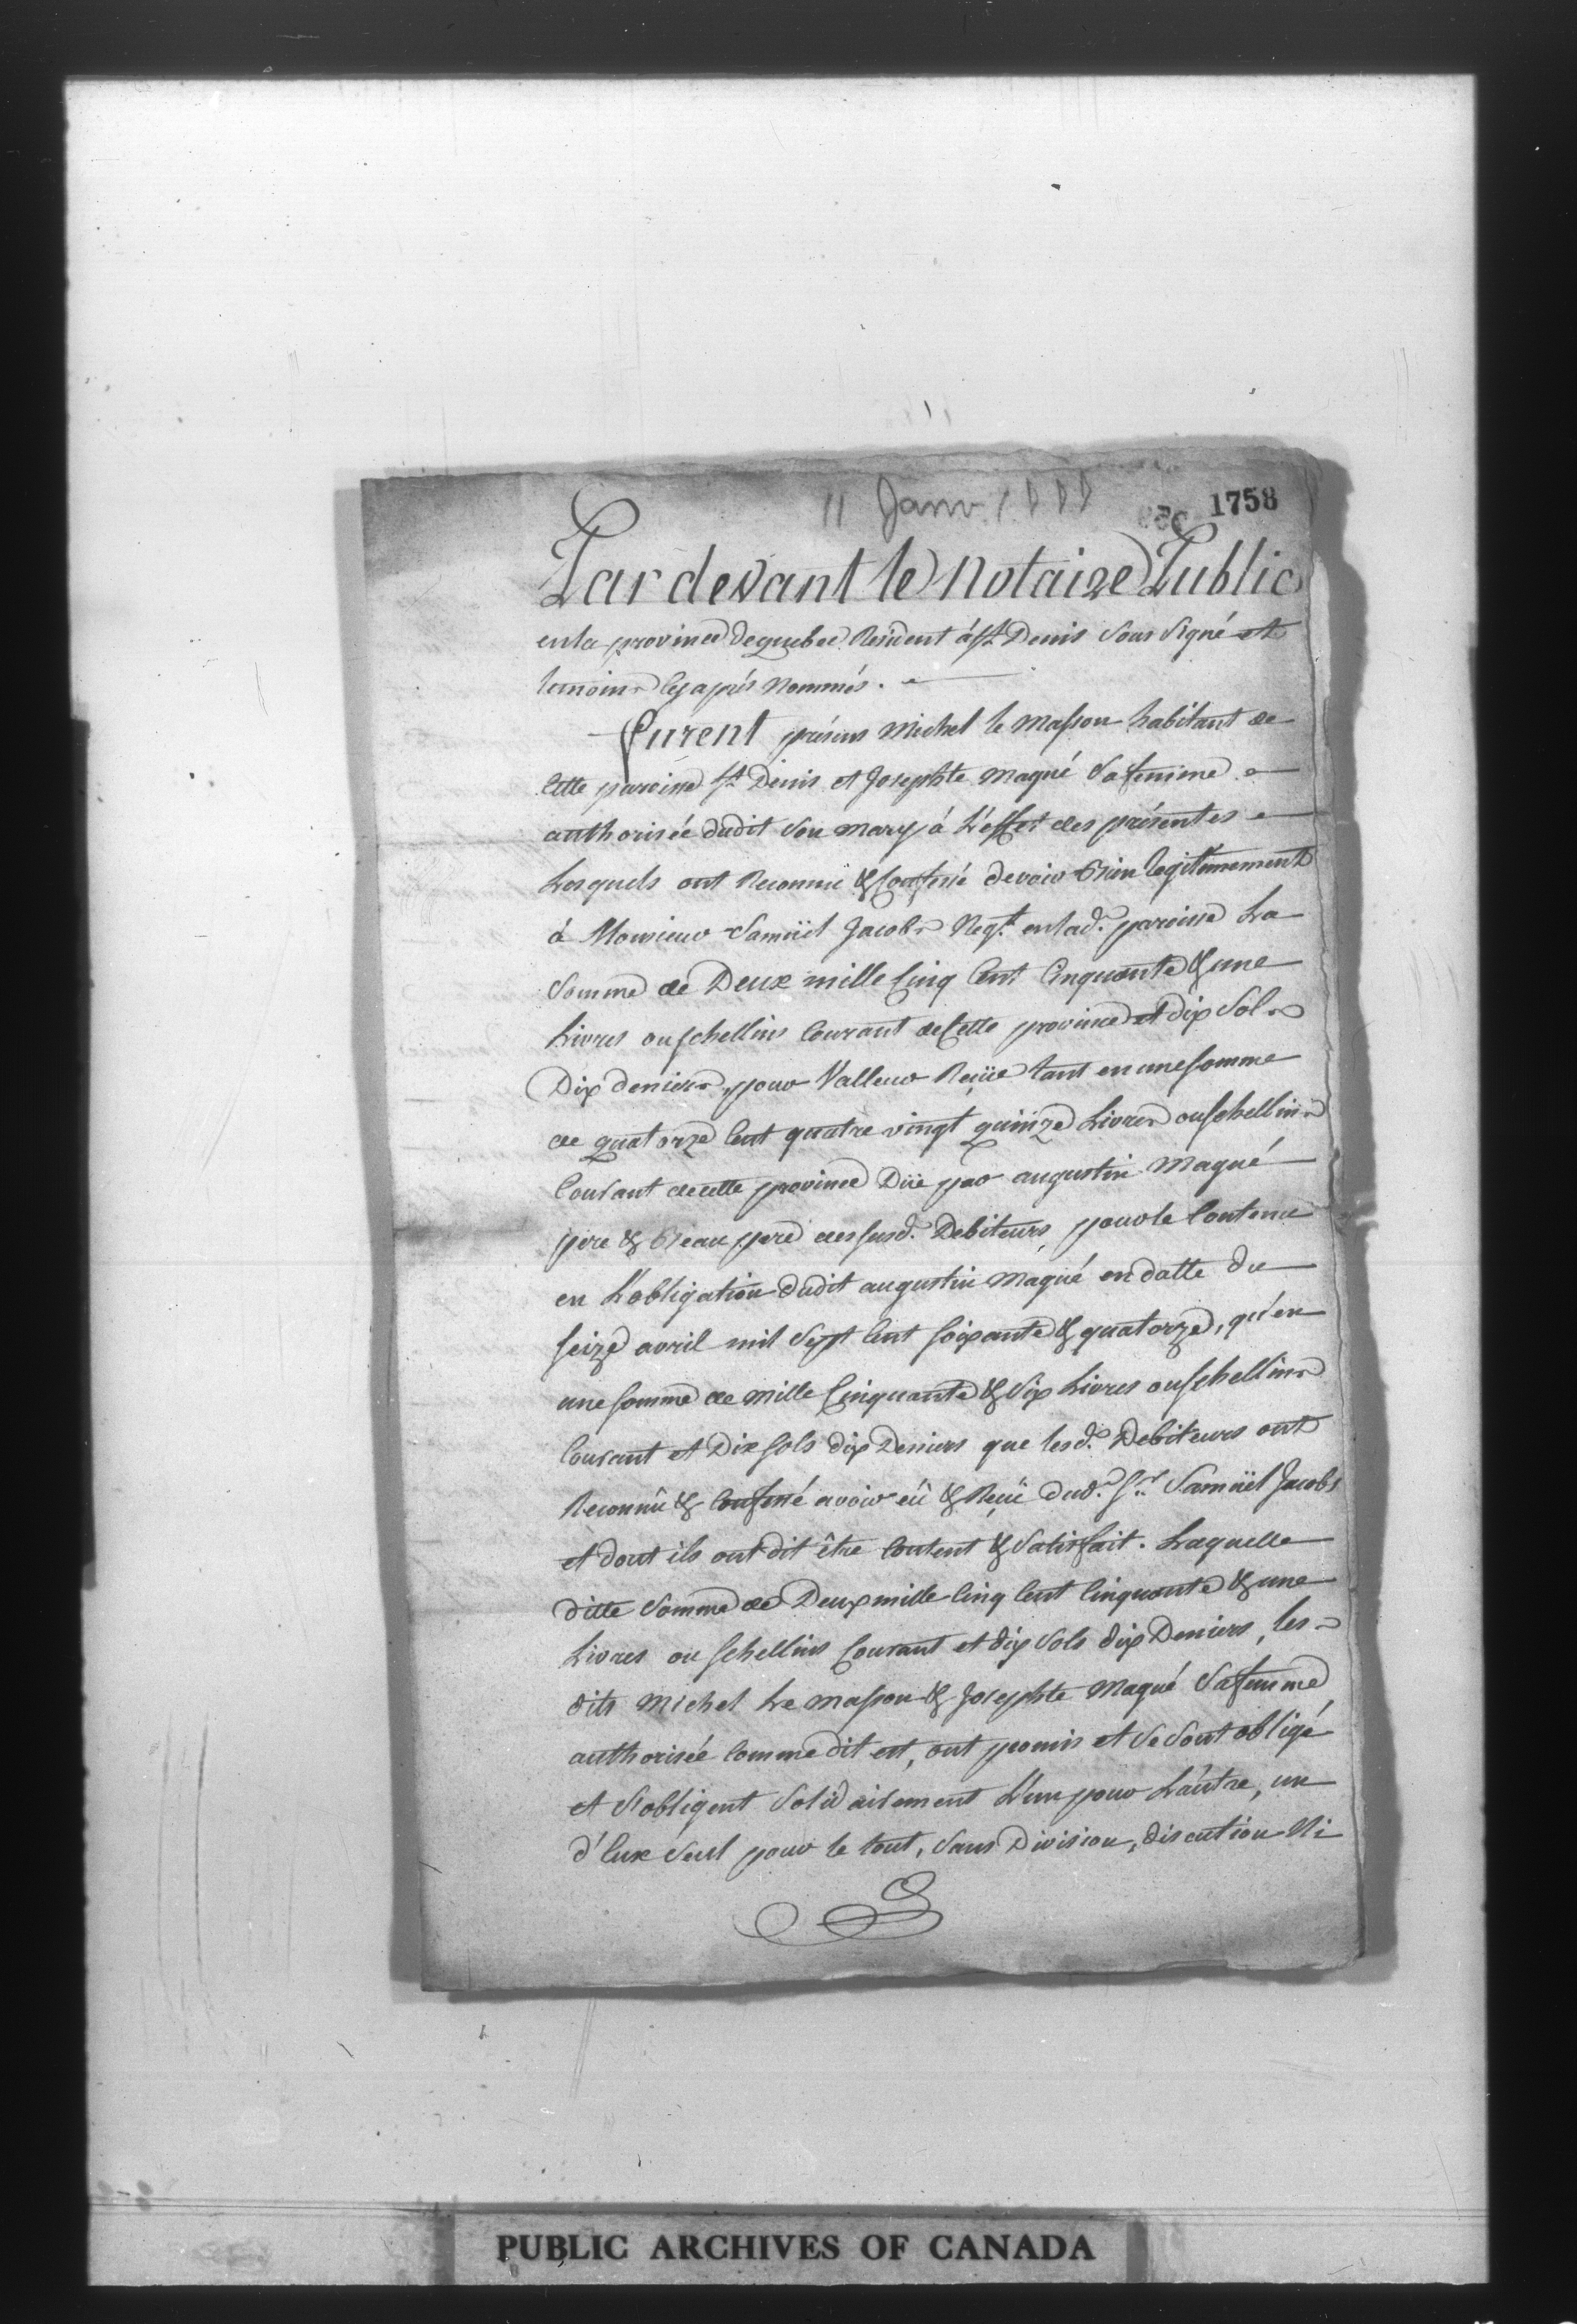 11 Janv.
1758
Par devant le Notaire Public
en la province de quebec Resident à St. Denis Sous Signé et
temoins Cy après Nommés.
Furent présens Michel le Masson habitant de
Cette paroisse St. Denis et Josephte Maqué Sa femme
authorisée dudit Son mary à L'effet des présentes
Lesquels ont Reconnu & Confessé devoir Bien legitimement
à Monsieur Samüel Jacobs Negt. en lad. paroisse La
Somme de Deux mille Cinq Cent Cinquante & une
Livres ou schellins Courant de Cette province et dix Sols
Dix deniers, pour Valleur Reçüe tant en une somme
de quatorze Cent quatre vingt quinze Livres ou schellins
Courant de cette province Düe par augustin Maqué
pere & Beau pere des susd. Debiteurs, pour le Contenu
en L'obligation dudit augustin Maqué en datte du
seize avril mil Sept Cent soixante & quatorze, qu'en
une somme de mille Cinquante & Six Livres ou schellins
Courant et Dix sols dix Deniers que lesd. Debiteurs ont
Reconnû & Confessé avoir eû & Reçû dud. Sr. Samüel Jacobs
et dont ils ont dit être Content & Satisfait. Laquelle
ditte Somme de Deux mille Cinq Cent Cinquante & une
Livres ou schellins Courant et dix Sols dix Deniers, les
dits Michel Le masson & Josephte Maqué Sa femme
authorisée Comme dit est, ont promis et Se Sont obligé
et S'obligent Solidairement L'un pour L'autre, un
d'Eux Seul pour le tout, Sans Division, discution Ni
PUBLIC ARCHIVES OF CANADA